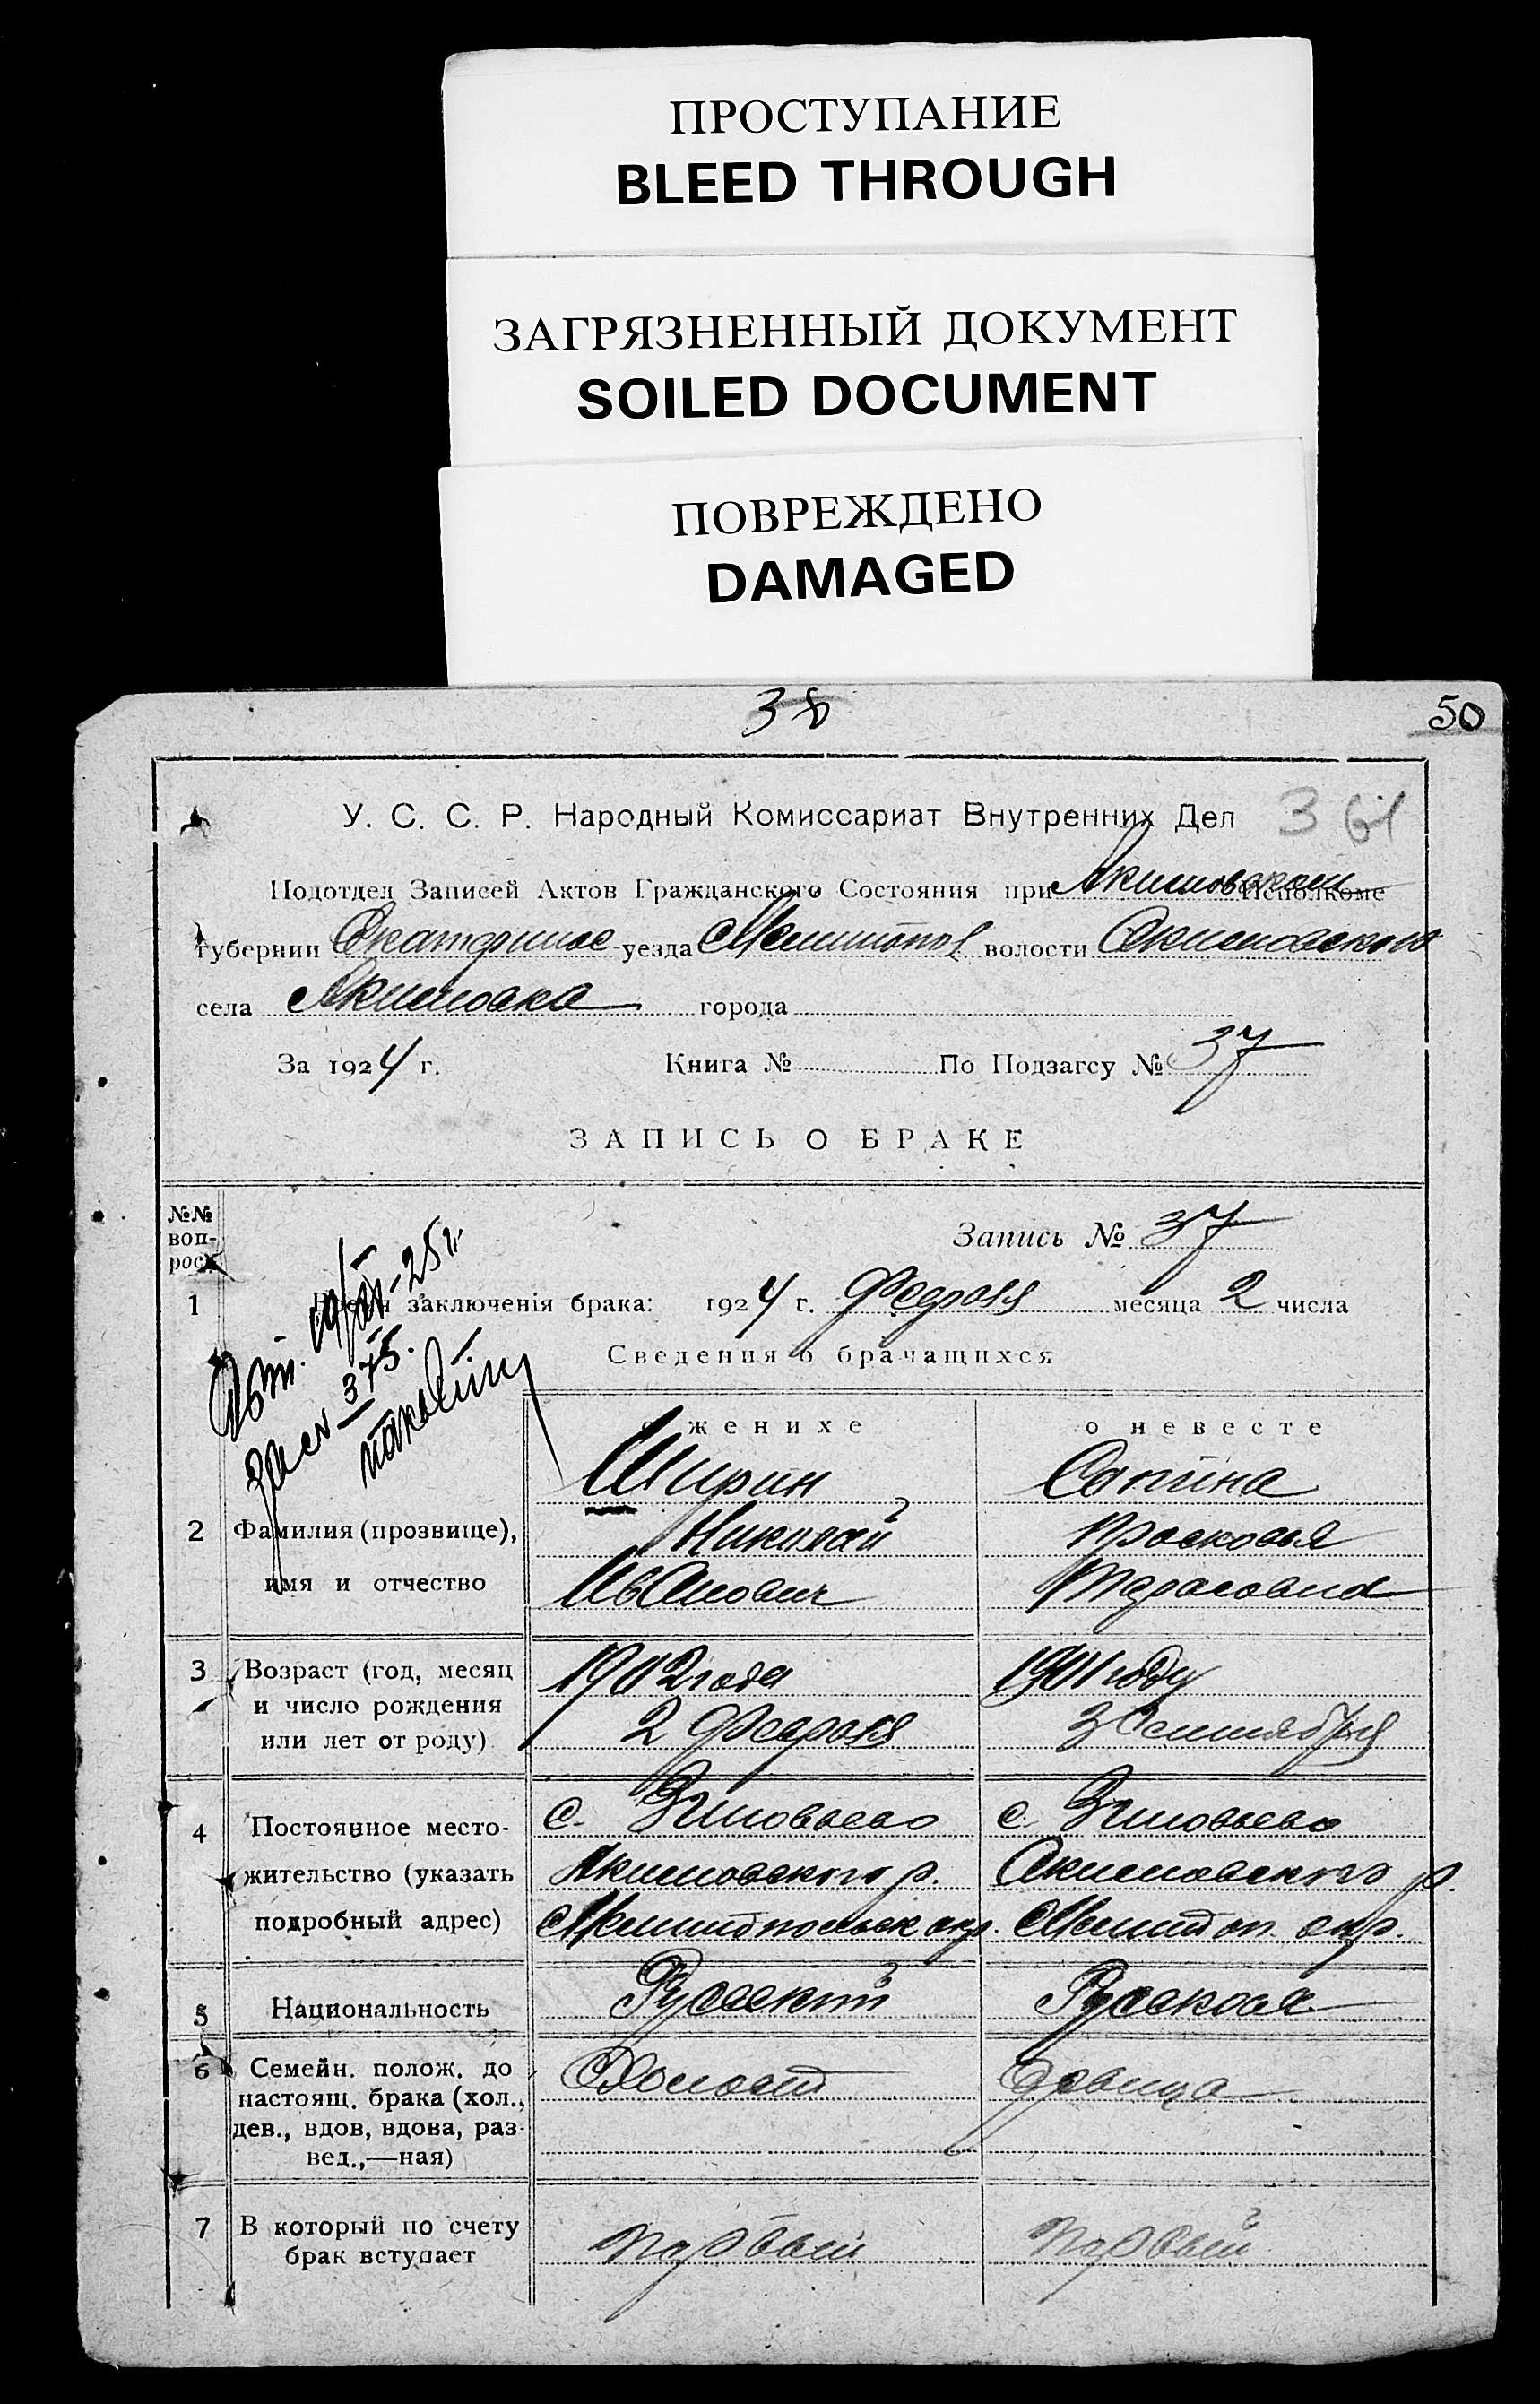 ПРОСТУПАНИЕ
BLEED THROUGH
ЗАГРЯЗНЕННЫЙ ДОКУМЕНТ
SOILED DOCUMENT
ПОВРЕЖДЕНО
DAMAGED
38
50
У. С. С. Р. Народный Комиссариат Внутренних Дел
Подотдел Записей Актов Гражданского Состояния при Акимовском Исполкоме
Губернии Екатеринос уезда Мелитопол волости Акимовского
села Акимовка города
За 1924 г. Книга № По Подзагсу № 37
ЗАПИСЬ О БРАКЕ
№№ воп-
рос.
Запись № 37
1 Время заключенія брака: 1924 г. Февраля месяца 2 числа
Сведения о брачащихся
о женихе о невесте
2 Фамилия (прозвище),
имя и отчество
Ширин
Николай
Иванович
Сапина
Просковья
Тарасовна
3 Возраст (год, месяц
и число рождения
или лет от роду)
1902 года
2 Февраля
1901 году
3 Сентября
4 Постоянное место-
жительство (указать
подробный адрес)
с. Зиновьево
Акимовского р.
Мелитопольск окр.
с. Зиновьево
Акимовского р.
Мелитоп. окр.
5 Национальность Русский Русская
6 Семейн. полож. до
настоящ. брака (хол.,
дев., вдов, вдова, раз-
вед.,—ная)
Холост девица
7 В который по счету
брак вступает
первый первый